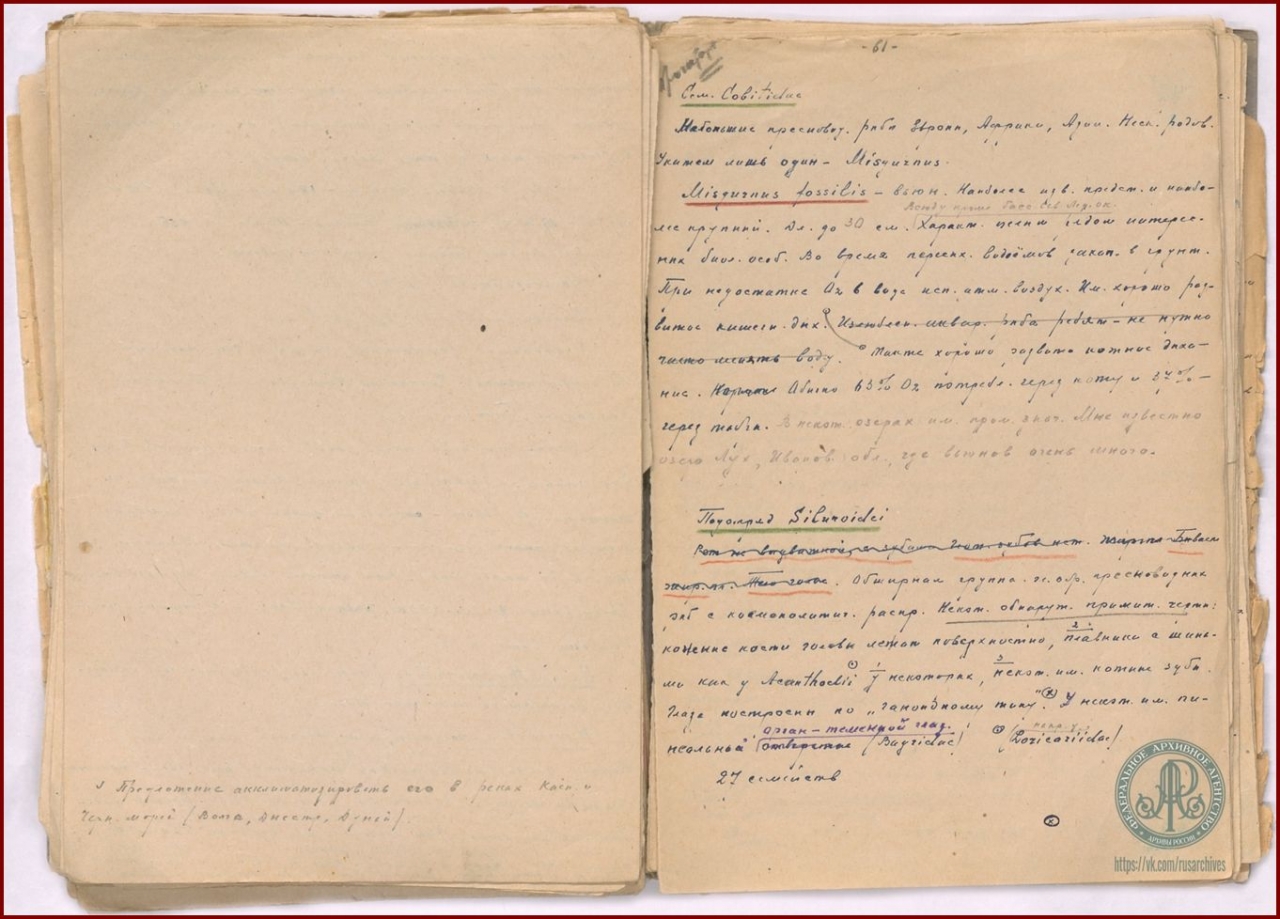 Предложение акклиматизировать его в реках Касп. и
Черн. морей (Волга, Днестр, Дунай).
-61-
Сем. Cobitidae
Маленькие пресновод. рыбы Европы, Африки, Азии. Неск. родов.
Укажем лишь один - Misgurnus.
Misgurnus fossilis - вьюн. Наиболее изв. предст. и наибо-
Всюду кроме басс. Сев. Лед. ок.
лее крупный. Дл. до 30 см. Характ. целым рядом интерес-
ных биол. особ. Во время пересых. водоёмов закап. в грунт.
При недостатке O2 в воде исп. атм. воздух. Им. хорошо раз-
витое кишечн. дых. Излюблен. аквар. рыба ребят - не нужно
часто менять воду. Также хорошо развито кожное дыха-
ние. Обычно 63% O2 потребл. через кожу и 37% -
через жабры. В некот. озерах им. пром. знач. Мне известно
озеро Лух, Иванов. обл., где вьюнов очень много.
Подотряд Siluroidei
Рот не выдвижной, зубов нет. Бывает
жир. пл. Тело голое. Обширная группа гл. обр. пресноводных
рыб с космополитич. распр. Некот. обнаруж. примит. черты:
кожные кости головы лежат поверхностно, 2 плавники с шипа-
ми как у Acanthodii 1 у некоторых, 3 некот. им. кожные зубы.
Глаза построены по "ганоидному типу". У некот. им. пи-
орган - теменной глаз.
неальный отверстие (Bagridae) (Loricariidae)
27 семейств
ФЕДЕРАЛЬНОЕ АРХИВНОЕ АГЕНТСТВО
АРХИВЫ РОССИИ
https://vk.com/rusarchives